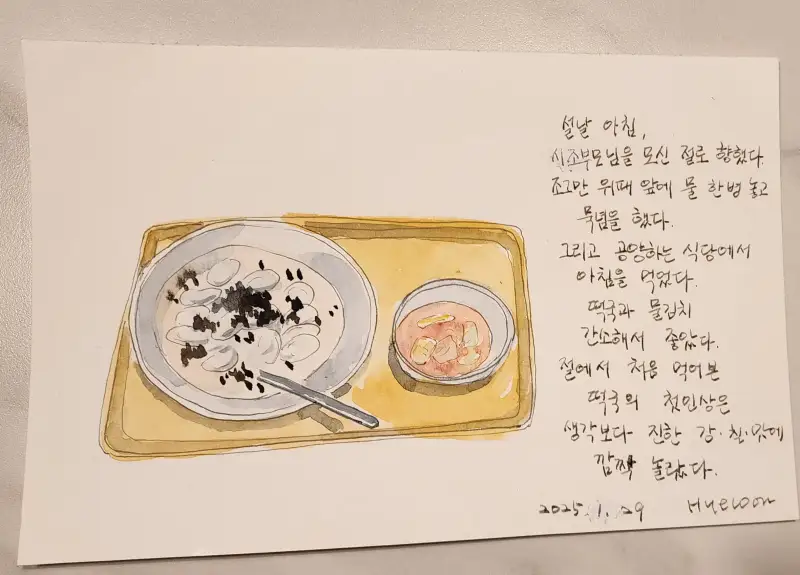 설날 아침,
시조부모님을 모신 절로 향했다.
조그만 위패 앞에 물 한병 놓고
묵념을 했다.
그리고 공양하는 식당에서
아침을 먹었다.
떡국과 물김치
간소해서 좋았다.
절에서 처음 먹어본
떡국의 첫인상은
생각보다 진한 감·칠·맛에
깜짝 놀랐다.
2025. 1. 29